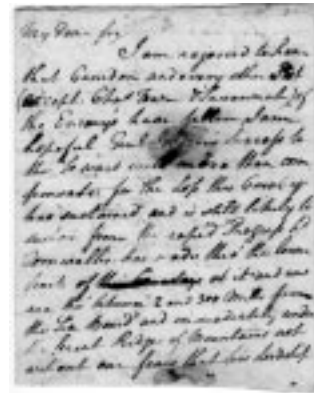 My Dear Sir
I am rejoiced to hear
that Camden and every other Post
except Chas Town & Savannah, of
the Enemys have fallen I am
hopeful Genl success to
the So ward will more than com
pensate for the loss this Country
has sustained and is still likely to
from the rapid Progress Ld
Cornwallis has made thro the lower
parts of at it and we
are the between 2 and 300 Miles from
the Sea Board and immediately under
Great Ridge of Mountains not
without our fears that his Lordship